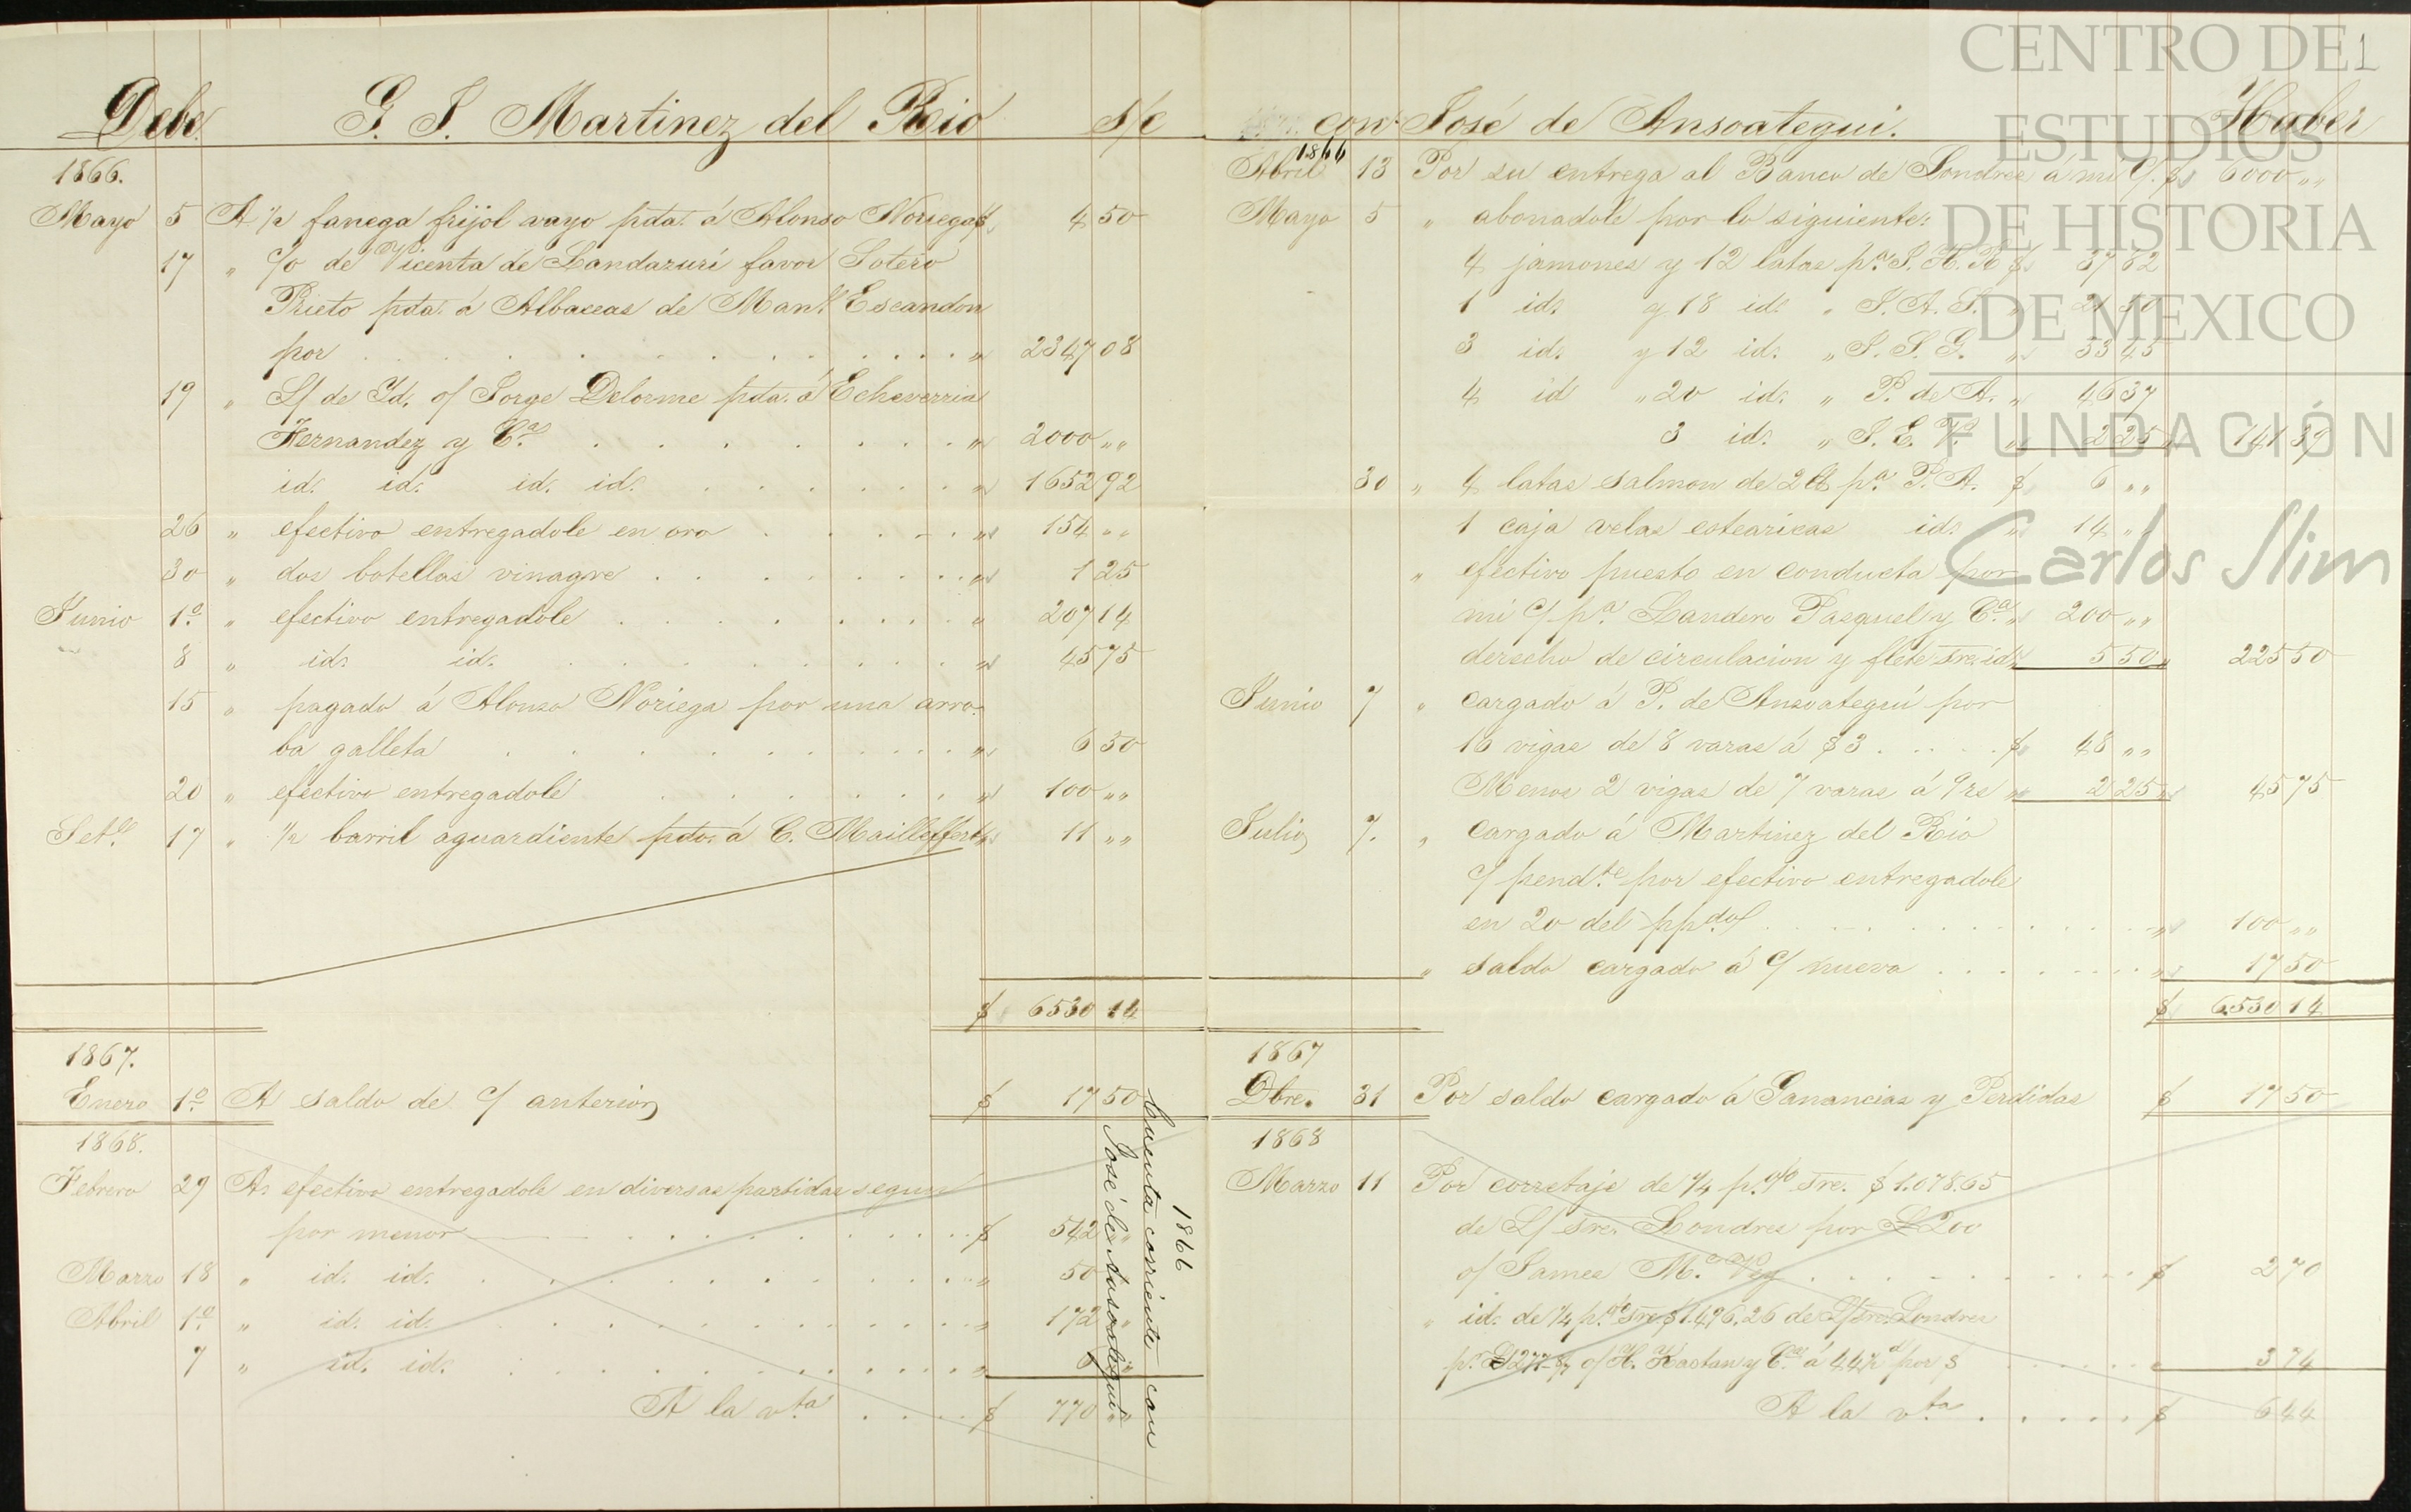 Debe G. J. Martinez del Rio s/c
1866.
Mayo 5 A ½ fanega frijol vayo pda. á Alonso Noriega $ 4 50
17 " c/o de Vicenta de Landazuri favor Sotero
Prieto pda. á Albaceas de Man.l Escandon
por . . . . . . . " 2347 08
19 " L/ de Yd. o/ Jorge Delorme pda. á Echeverria
Fernandez y C.as . . . . . . . " 2000 " "
id. id. id. id. . . . . . . " 1652 92
26 " efectivo entregadole en oro . . . . . " 154 " "
30 " dos botellas vinagre . . . . . . . " 1 25
Junio 1.o " efectivo entregadole . . . . . . . " 207 14
8 " id. id. . . . . . . . " 45 75
15 " pagado á Alonso Noriega por una arro-
ba galleta . . . . . . . " 6 50
20 " efectivo entregadole . . . . . . " 100 " "
Set.e 17 " ½ barril aguardiente pdo. á C. Maillefert " 11 " "
$ 6530 14
1867.
Enero 1.o A saldo de c/ anterior $ 17 50
1868.
Febrero 29 A efectivo entregadole en diversas partidas segun
por menor . . . . . . . $ 542 "
Marzo 18 " id. id. . . . . . . . " 50
Abril 1.o " id. id. . . . . . . . " 172 "
7 " id. id. . . . . . . . " 6 "
A la v.ta . . . . $ 770 " "
1866
Cuenta corriente con
José de Ansoategui
con José de Ansoategui. Haber 1
1866
Abril 13 Por su entrega al Banco de Londres á mi c/. $ 6000 " "
Mayo 5 " abonadole por lo siguiente:
4 jamones y 12 latas p.a J. H. R $ 37 82
1 id. y 18 id. " J. A. S. " 21 50
3 id. y 12 id. " J. S. G. " 33 45
4 id " 20 id. " P. de A. " 46 37
3 id. " J. E. V. " 2 25 " 141 39
30 " 4 latas salmon de 2 lb p.a P. A. $ 6 " "
1 caja velas estearicas id. " 14 " "
" efectivo puesto en conducta por
mi c/ p.a Landero Pasquel y C.a " 200 " "
derecho de circulacion y flete sre. id. " 5 50 " 225 50
Junio 7 " cargado á P. de Ansoategui por
16 vigas de 8 varas á $ 3 . . . . . $ 48 " "
Menos 2 vigas de 7 varas á 9 rs " 2 25 " 45 75
Julio 7. " cargado á Martinez del Rio
c/ pend.te por efectivo entregadole
en 20 del pp.do/ . . . . . . . " 100 " "
" saldo cargado á c/ nueva . . . . . . . " 17 50
$ 6530 14
1867
Dbre. 31 Por saldo cargado á Ganancias y Perdidas $ 17 50
1868
Marzo 11 Por corretaje de ¼ p.% sre. $ 1.078.65
de L/ sre. Londres por £ 200
o/ James . . . . . . . $ 2 70
" id. de ¼ p.% sre. $ 1.496,26 de L/ sre. Londres
o/ H. Kastan y C.as á por $ . . . . . " 3 74
A la v.ta . . . . . $ 6 44
CENTRO DE
ESTUDIOS
DE HISTORIA
DE MEXICO
FUNDACIÓN
Carlos Slim